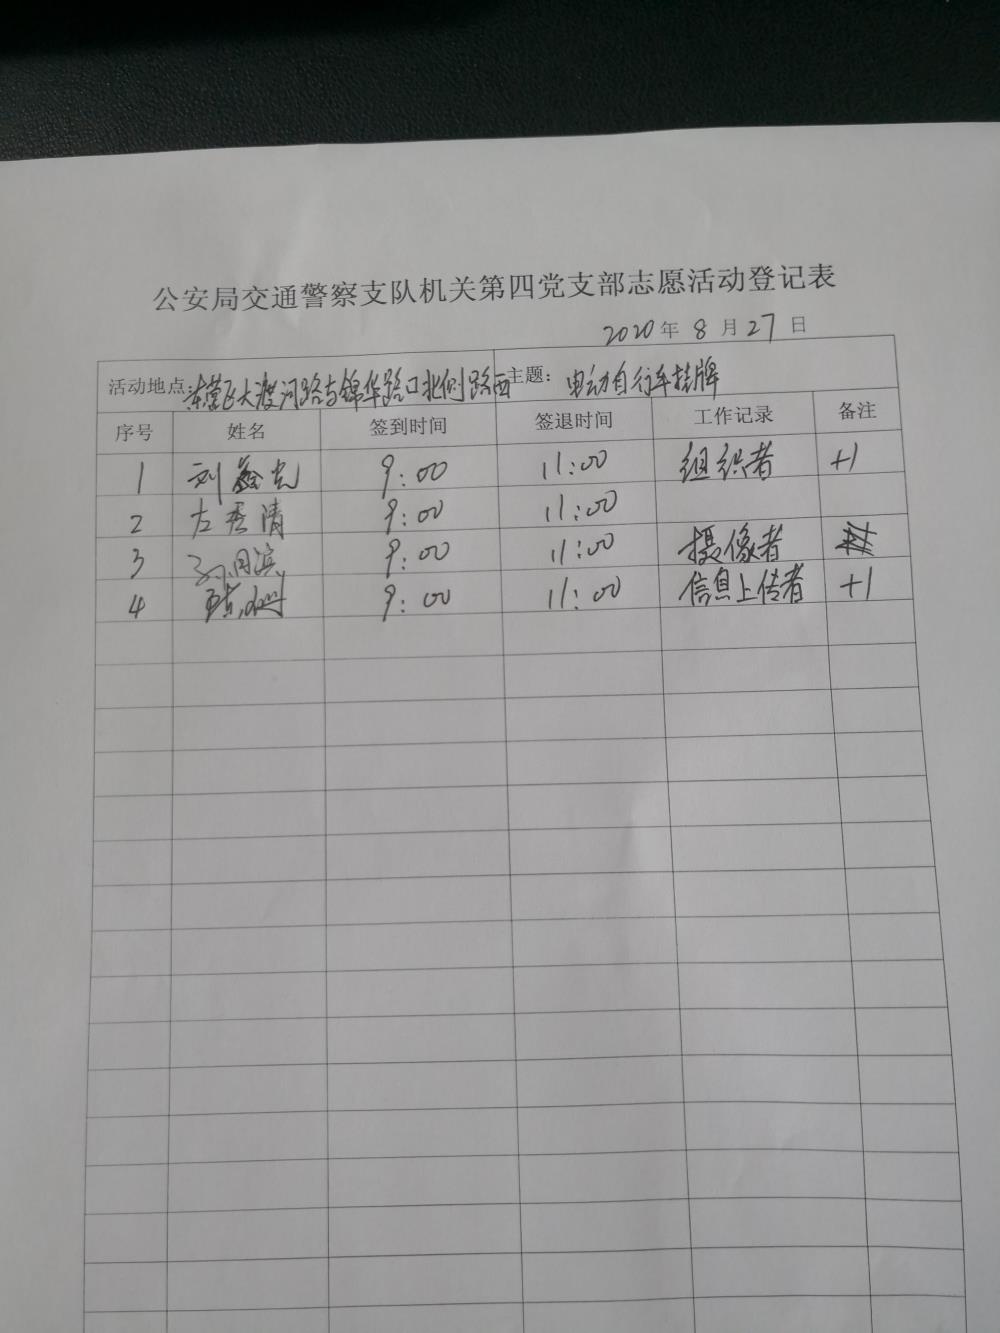 公安局交通警察支队机关第四党支部志愿活动登记表
2020年 8 月 27 日
活动地点:东营区大渡河路与锦华路口北侧路西 主题: 电动自行车挂牌
序号 姓名 签到时间 签退时间 工作记录 备注
1 刘鑫光 9:00 11:00 组织者 +1
2 左秀清 9:00 11:00
3 孙国滨 9:00 11:00 摄像者
4 9:00 11:00 信息上传者 +1